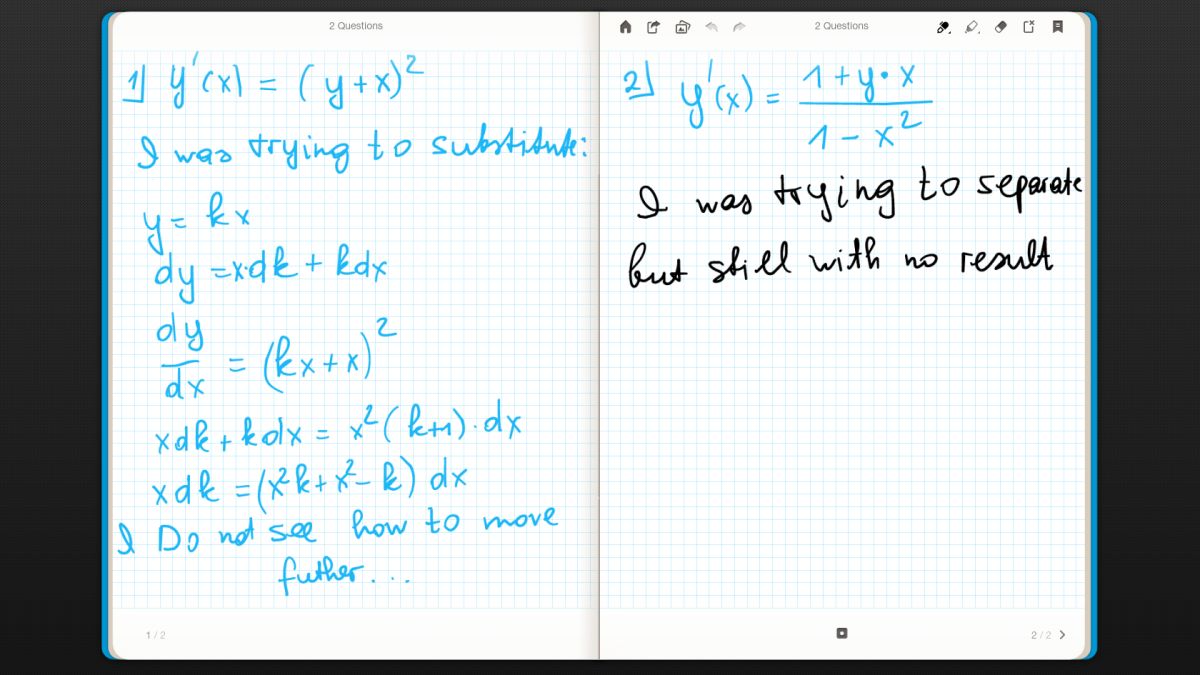 2 Questions
1) y'(x) = (y+x)²
I was trying to substitute:
y = kx
dy = x·dk + kdx
dy/dx = (kx+x)²
xdk + kdx = x²(k+1)·dx
xdk = (x²k + x² - k) dx
I Do not see how to move
futher...
1 / 2
2 Questions
2) y'(x) = (1+y•x)/(1-x²)
I was trying to separate
but still with no result
2 / 2